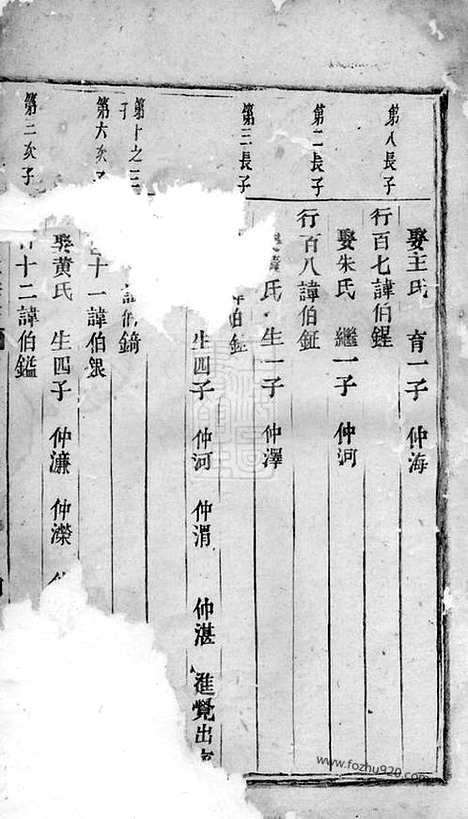 娶王氏 育一子 仲海
第八長子
行百七諱伯鍟
娶朱氏 繼一子 仲河
第二長子
行百八諱伯鉦
氏 生一子 仲澤
第三長子
諱伯
生四子 仲河 仲渭 仲湛 進覺出
第十之三子
諱伯鏑
第六次子
十一諱伯銀
娶黄氏 生四子 仲濂 仲濚
第二次子
十二諱伯鎰
www.fozhu920.com